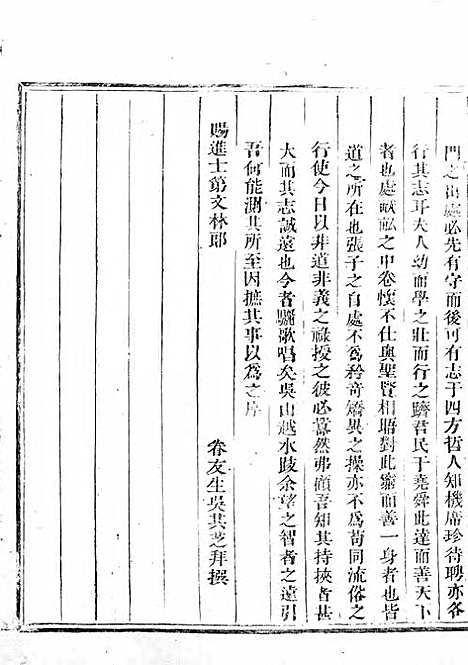 門之出處必先有守而後可有志于四方哲人知機席珍待聘亦各
行其志耳夫人幼而學之壯而行之躋君民于堯舜此達而善天下
者也處畎畝之中卷懷不仕與聖賢相晤對此窮而善一身者也皆
道之所在也張子之自處不為矜奇矯異之操亦不為苟同流俗之
行使今日以非道非義之祿授之彼必囂然弗顧吾知其持挾者甚
大而其志誠遠也今者驪歌唱矣吳山越水歧余望之智者之遠引
吾何能測其所至因摭其事以為之序
賜進士第文林郎 眷友生吳其芝拜撰